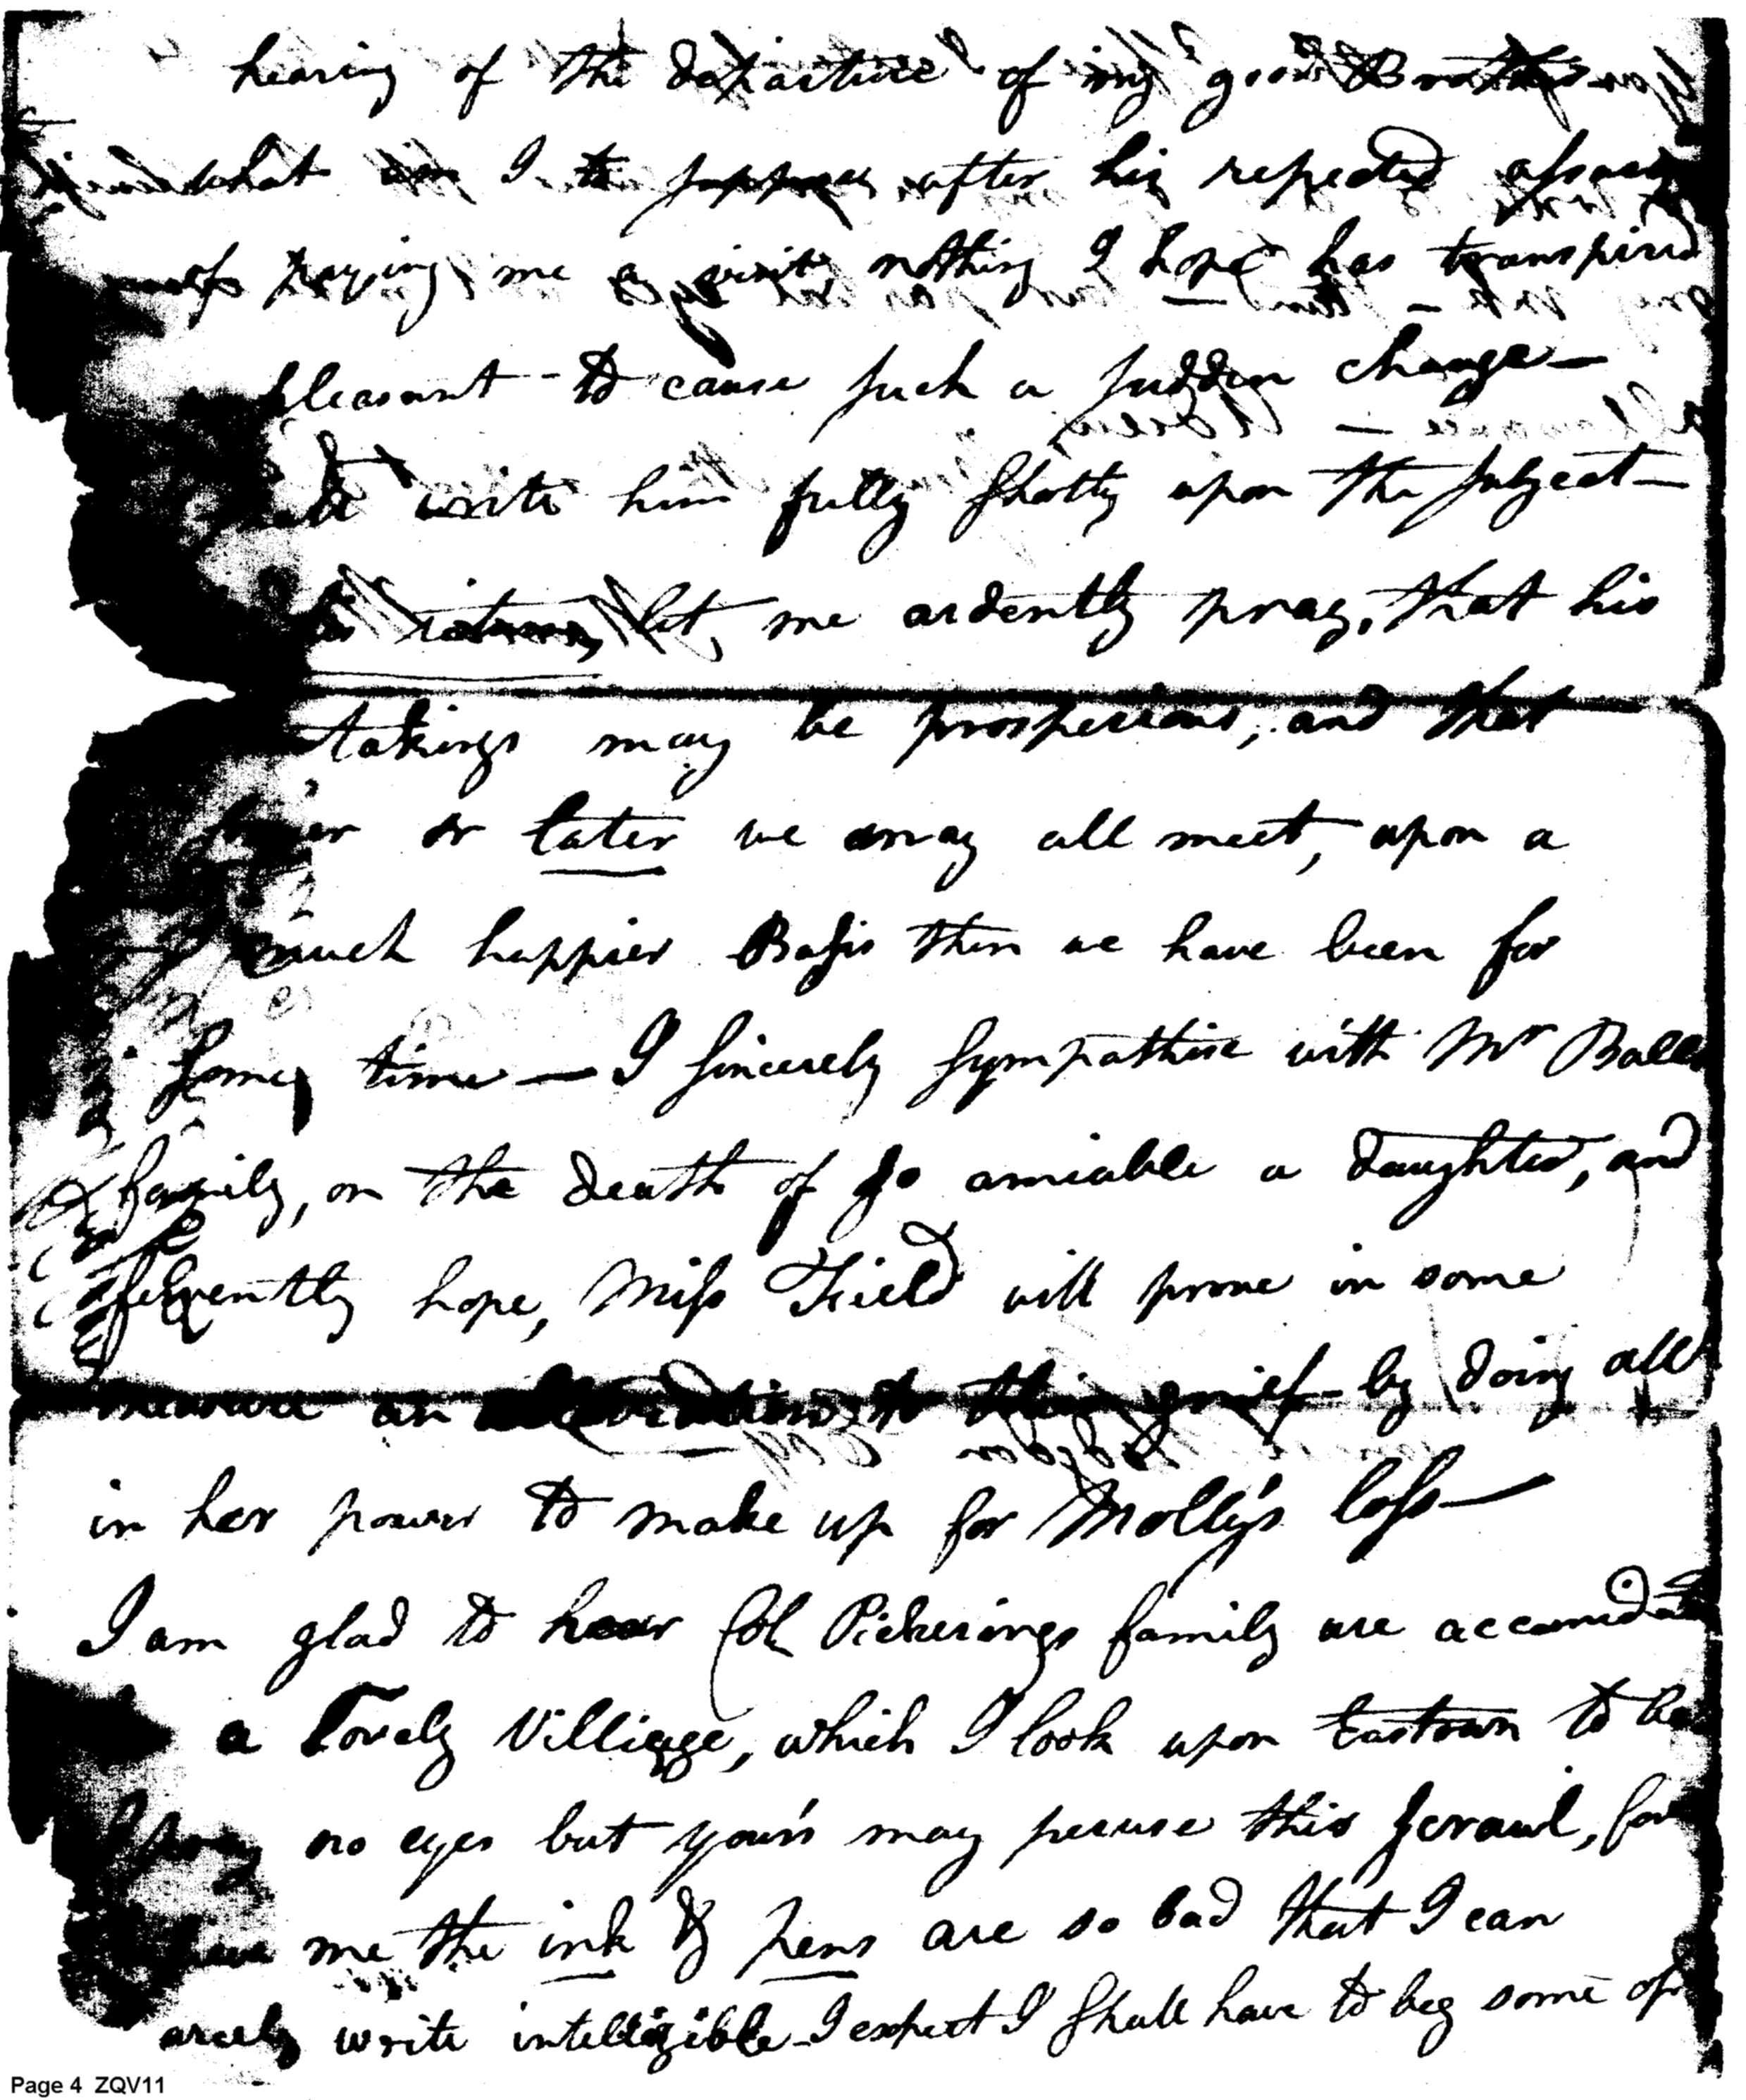 hearing of the departure of my good Brother
what am I to suppose after his repeated assura
of paying me a visit nothing I hope has transpired
pleasant to cause such a sudden change—
write him fully shotly upon the subject—
return, let me ardently pray, that his
takings may be prosperious, and that
or later we may all meet, upon a
much happier Basis then we have been for
some time — I sincerely sympathise with Mr Balls
family, on the death of so amiable a daughter, and
fervently hope, Miss Field will prove in some
measure an alleviation to their grief by doing all
in her power to make up for Molly's loss—
I am glad to hear Col Pickerings family are accomidat
a Lovely Villiage, which I look upon Eastown to be
pray no eyes but your's may peruse this scrawl, for
me the ink & pens are so bad that I can
arcely write intelligible - I expect I shall have to beg some of
Page 4 ZQV11